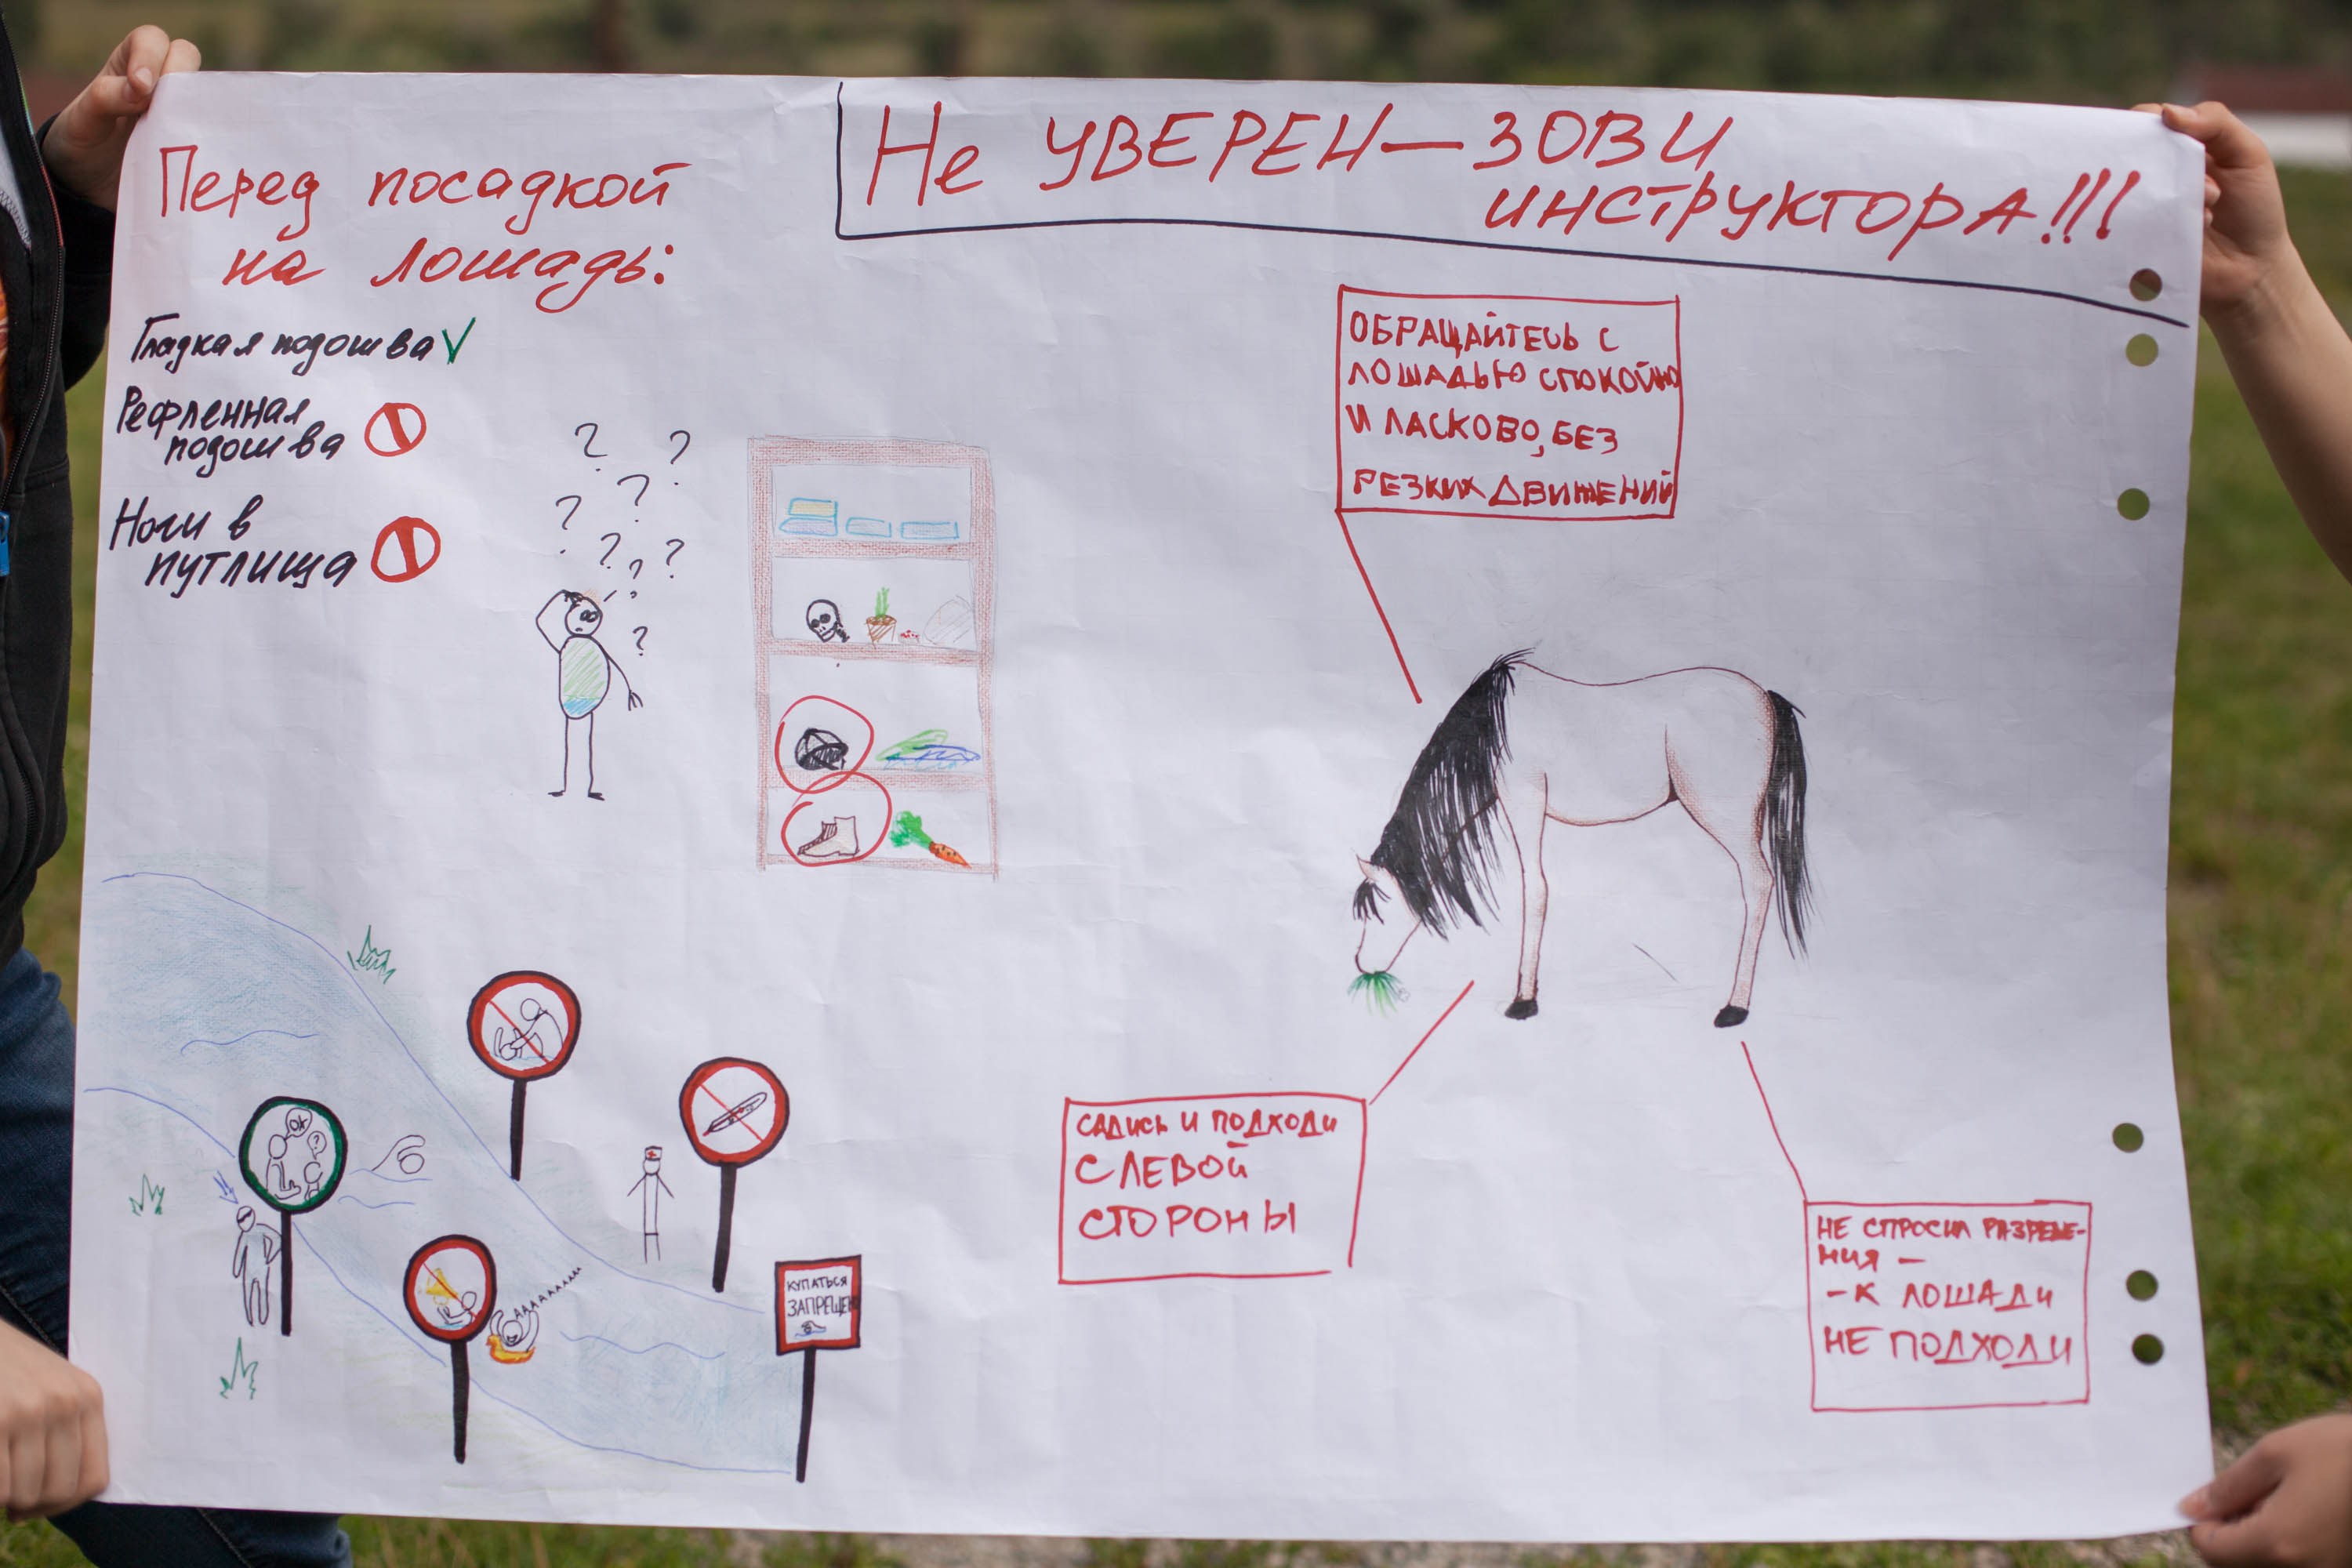 Не УВЕРЕН — ЗОВИ
ИНСТРУКТОРА!!!
Перед посадкой
на лошадь:
Гладкая подошва
Рефленная
подошва
Ноги в
путлища
ОБРАЩАЙТЕСЬ С
ЛОШАДЬЮ СПОКОЙНО
И ЛАСКОВО, БЕЗ
РЕЗКИХ ДВИЖЕНИЙ
САДИСЬ И ПОДХОДИ
С ЛЕВОЙ
СТОРОНЫ
НЕ СПРОСИЛ РАЗРЕШЕ-
НИЯ —
- К ЛОШАДИ
НЕ ПОДХОДИ
OK
?
АААААААА
КУПАТЬСЯ
ЗАПРЕЩЕН
? ? ? ? ? ? ? ?